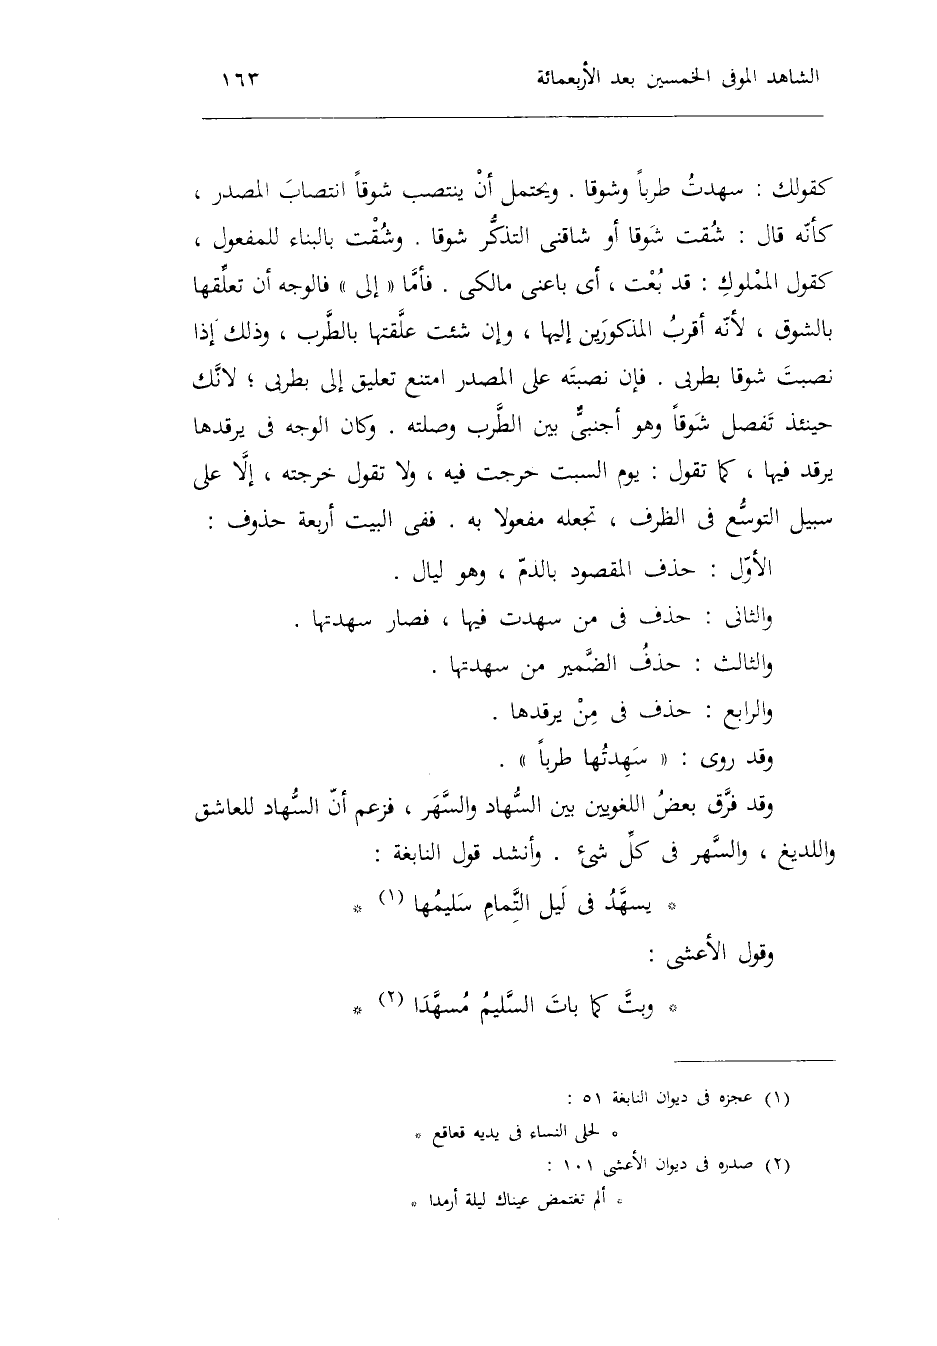 الشاهد الموفى الخمسين بعد الأربعمائة ١٦٣
كقولك : سهدتُ طرباً وشوقا . ويحتمل أنْ ينتصب شوقاً انتصابَ المصدر ،
كأنّه قال : شُقت شَوقا أو شاقنى التذكُّر شوقا . وشُقْت بالبناء للمفعول ،
كقول المْلوكِ : قد بُعْت ، أى باعنى مالكى . فأمَّا « إلى » فالوجه أن تعلِّقها
بالشوق ، لأنّه أقربُ المذكورَين إليها ، وإن شئت علَّقتها بالطَّرب ، وذلك إذا
نصبتَ شوقا بطربى . فإن نصبتَه على المصدر امتنع تعليق إلى بطربى ؛ لانَّك
حينئذ تَفصل شَوقاً وهو أجنبىٌّ بين الطَّرب وصلته . وكان الوجه فى يرقدها
يرقد فيها ، كما تقول : يوم السبت خرجت فيه ، ولا تقول خرجته ، إلَّا على
سبيل التوسُّع فى الظرف ، تجعله مفعولا به . ففى البيت أربعة حذوف :
الأوّل : حذف المقصود بالذمّ ، وهو ليال .
والثانى : حذف فى من سهدت فيها ، فصار سهدتها .
والثالث : حذفُ الضَّمير من سهدتها .
والرابع : حذف فى مِنْ يرقدها .
وقد روى : « سَهِدتُها طرباً » .
وقد فرَّق بعضُ اللغويين بين السُّهاد والسَّهَر ، فزعم أنّ السُّهاد للعاشق
واللديغ ، والسَّهر فى كلِّ شىْء . وأنشد قول النابغة :
* يسهَّدُ فى لَيل التِّمامِ سَليمُها (١) *
وقول الأعشى :
* وبتَّ كما باتَ السَّليمُ مُسهَّدَا (٢) *
(١) عجزه فى ديوان النابغة ٥١ :
* لحلى النساء فى يديه قعاقع *
(٢) صدره فى ديوان الأعشى ١٠١ :
* ألم تغتمض عيناك ليلة أرمدا *